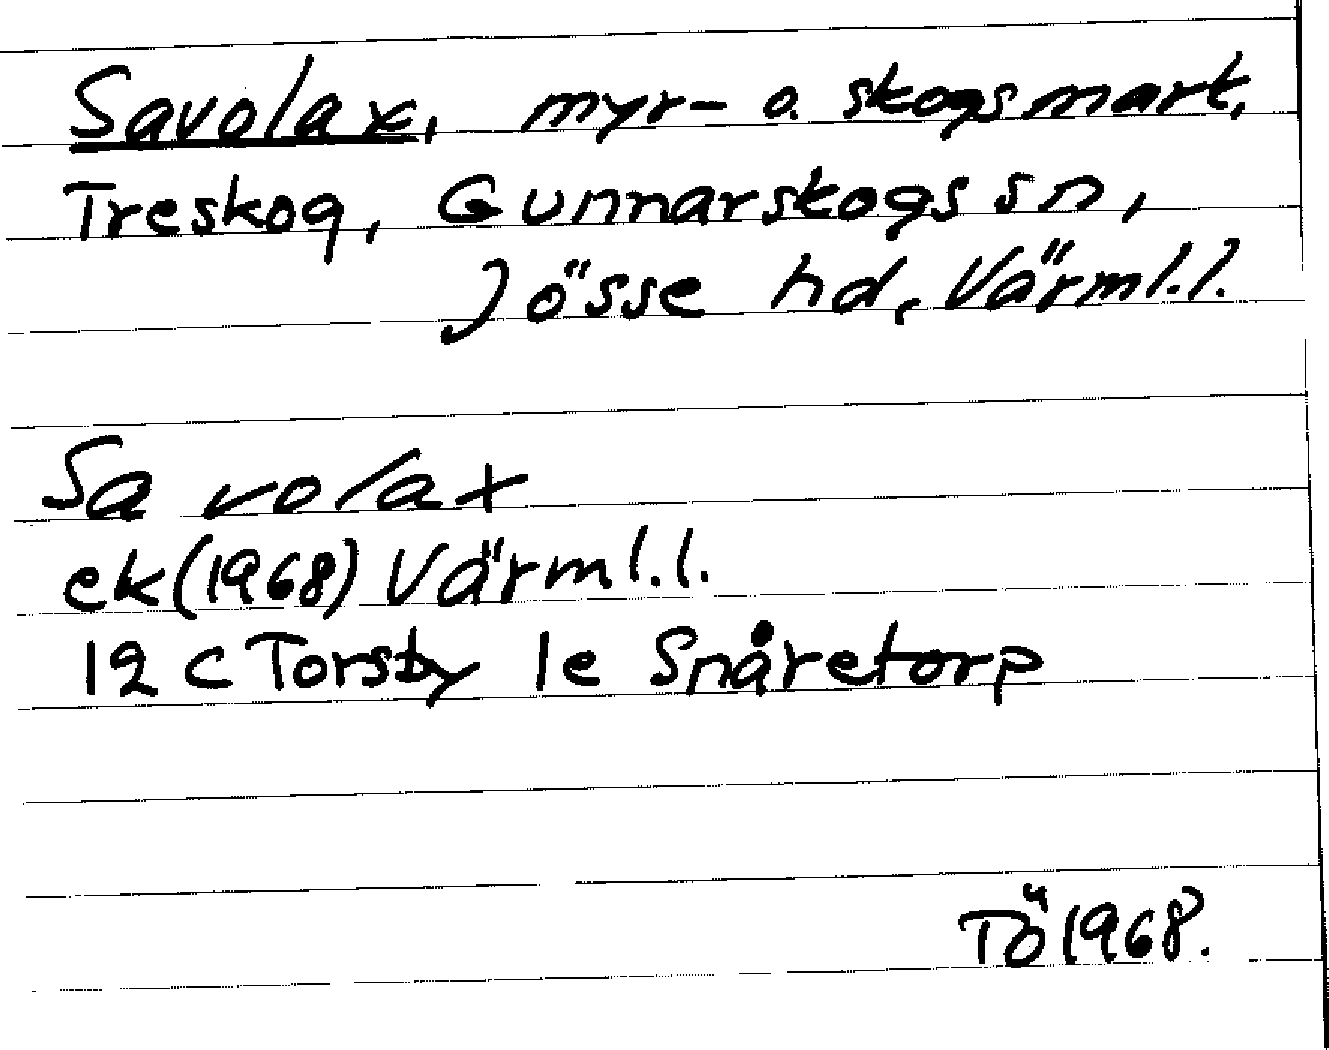 Savolax, myr- o. skogsmark,
Treskog, Gunnarskogs sn,
Jösse hd, Värml.l.
Savolax
ek (1968) Värml.l.
12 C Torsby 1e Snåretorp
TÖ 1968.